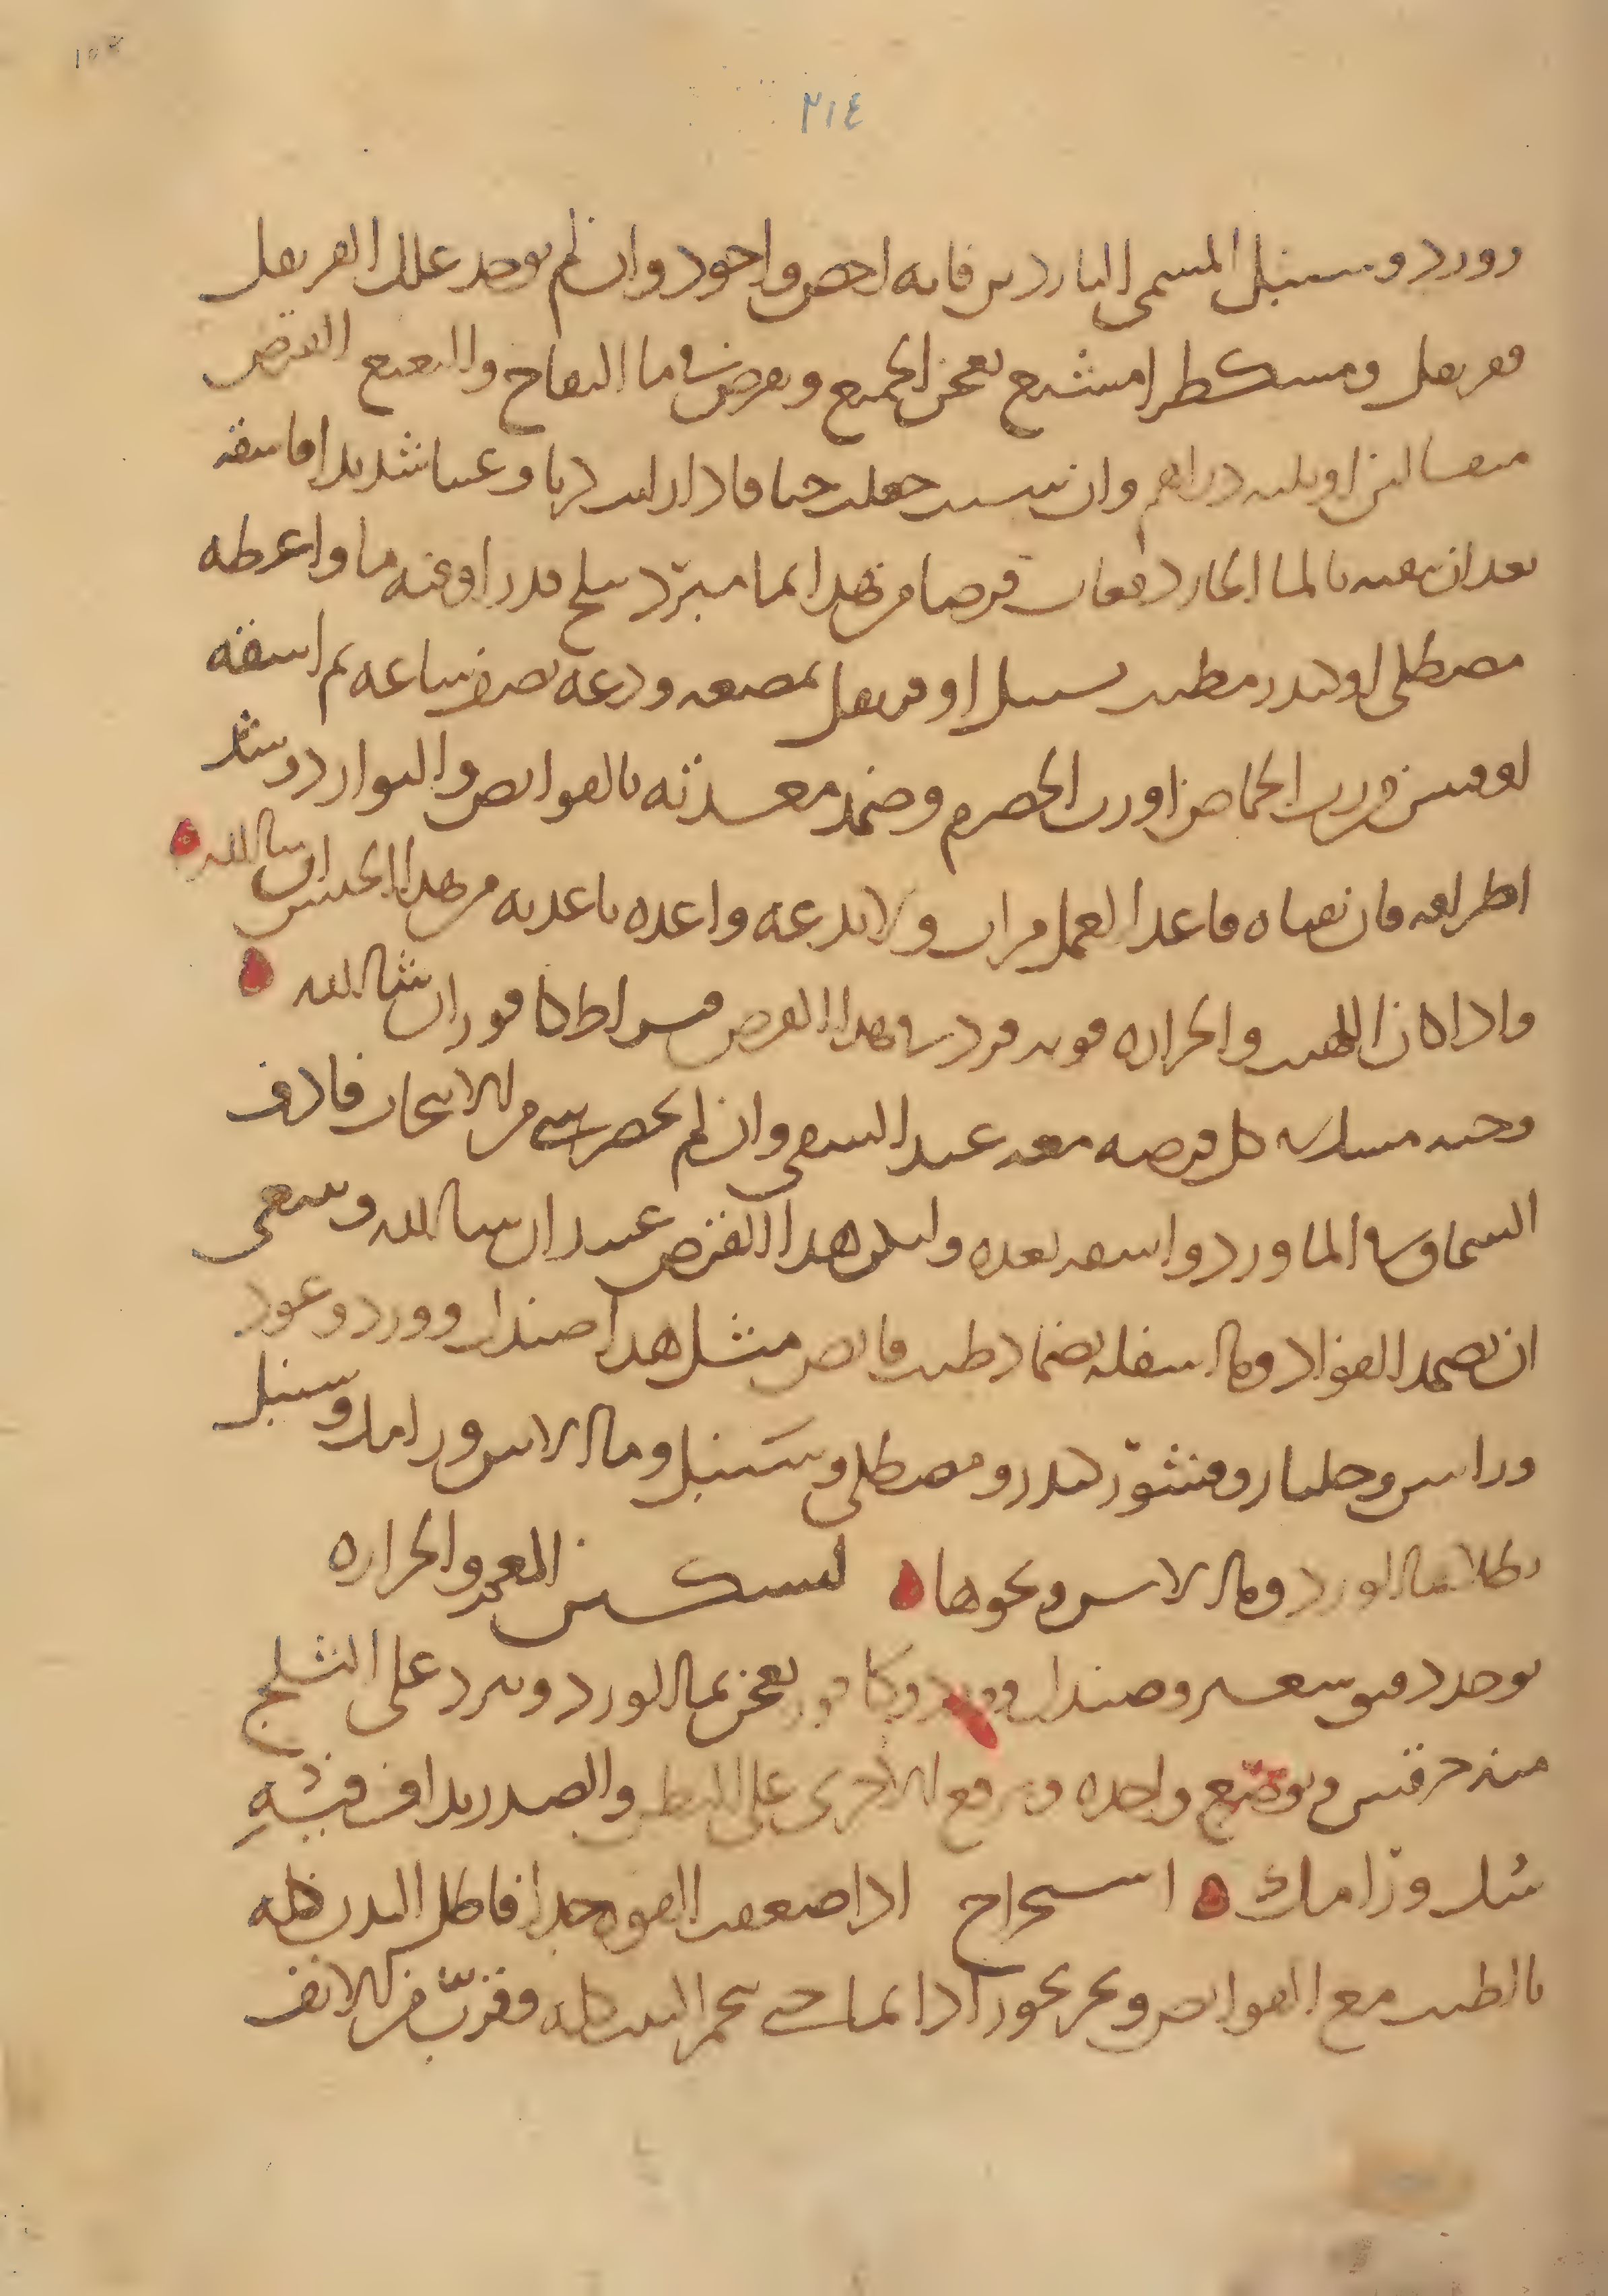 ٢١٤
وورد وسنبل المسمى الناردين فانه اخص واجود وان لم يوجد علك القرنفل
فقرنفل ومسكطرامشيع يعجن الجميع ويقرص في ما التفاح والنعنع القرص
مثقالين او ثلثه دراهم وان شيت جعلت حبا فاذا رايت كربا وغثيا شديدا فاسقه
بعد ان تقيه بالما الحار دفعات قرصا من هذا بما مبرد بثلج قدر اوقيه ما واعطه
مصطكى او كندر مطيب بسنبل او قرنفل يمضغه ودعه نصف ساعه ثم اسقه
اوقيتين من رب الحماض او رب الحصرم وضمد معدته بالقوابض والبوارد وشد
اطرافه فان تقياه فاعد العمل مرات ولا تدعه واغذه باغذيه من هذا الجنس ان شا الله
واذا كان اللهيب والحراره قويه فزد في هذا القرص قيراط كافور ان شا الله
وحبه مسك في كل قرصه معه عند السقي وان لم يحضر شي من الاشجار فادف
السماق في الما ورد واسقه بعده وليكن هذا القرص عندك ان شا الله وينبغي
ان تضمد الفؤاد وما اسفله بضماد طيب قابض مثل هذا صندل وورد وعود
وراسن وجلنار ومنثور كندر ومصطكى وسنبل وما الاس ورامك وسنبل
يطلا بما الورد وما الاس ونحوها لتسكين المعده والحراره
يوخذ دقيق شعير وصندل وورد وكافور يعجن بما الورد ويبرد على الثلج
منه خرقتين ويوضع واحده ويرفع الاخرى على البطن والصدر
سك ورامك استخراج اذا ضعفت القوه جدا فاطل البدن كله
بالطيب مع القوابض وبخر بخورا دايما حتى يحمر البيت كله وقرب من الانف